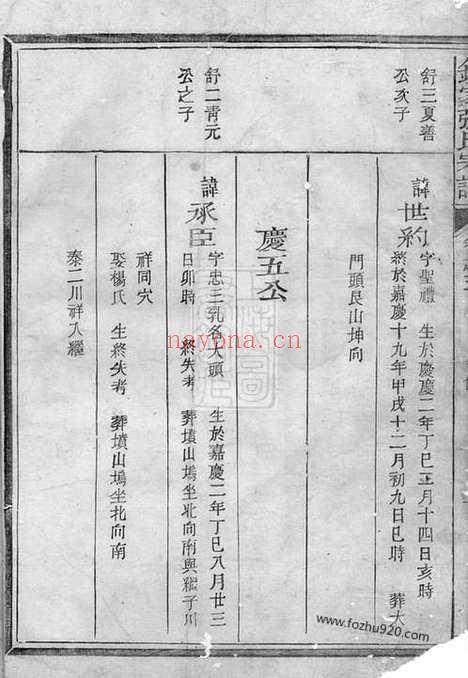 張氏宗譜
舒三夏善
公亥子
諱世約
字聖禮 生於慶慶二年丁巳正月十四日亥時
終於嘉慶十九年甲戌十二月初九日巳時 葬大
門頭艮山坤向
慶五公
舒二青元
公之子
諱承臣
字忠三乳名大頭 生於嘉慶二年丁巳八月廿三
日卯時 終失考 葬墳山塢坐北向南與繼子川
祥同穴
娶楊氏 生終失考 葬墳山塢坐北向南
泰二川祥入繼
nayona.cn
www.fozhu920.com